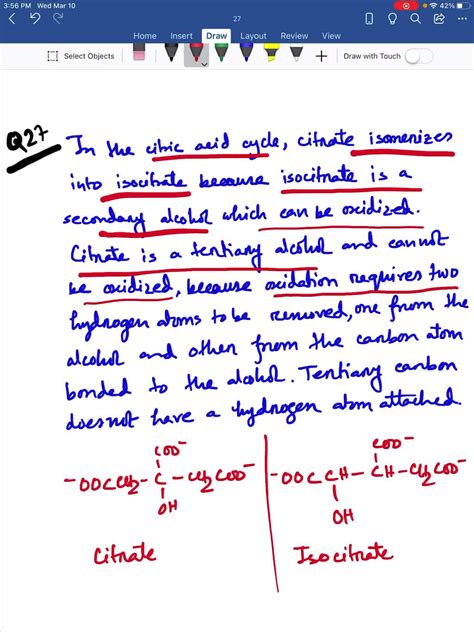 3:56 PM Wed Mar 10
42%
27
Home Insert Draw Layout Review View
Select Objects
Draw with Touch
Q27 In the citric acid cycle, citrate isomerizes
into isocitrate because isocitrate is a
secondary alcohol which can be oxidized.
Citrate is a tertiary alcohol and cannot
be oxidized, because oxidation requires two
hydrogen atoms to be removed, one from the
alcohol and other from the carbon atom
bonded to the alcohol. Tertiary carbon
does not have a hydrogen atom attached.
COO⁻
⁻OOCCH₂-C-CH₂COO⁻
OH
Citrate
COO⁻
⁻OOCCH-CH-CH₂COO⁻
OH
Isocitrate